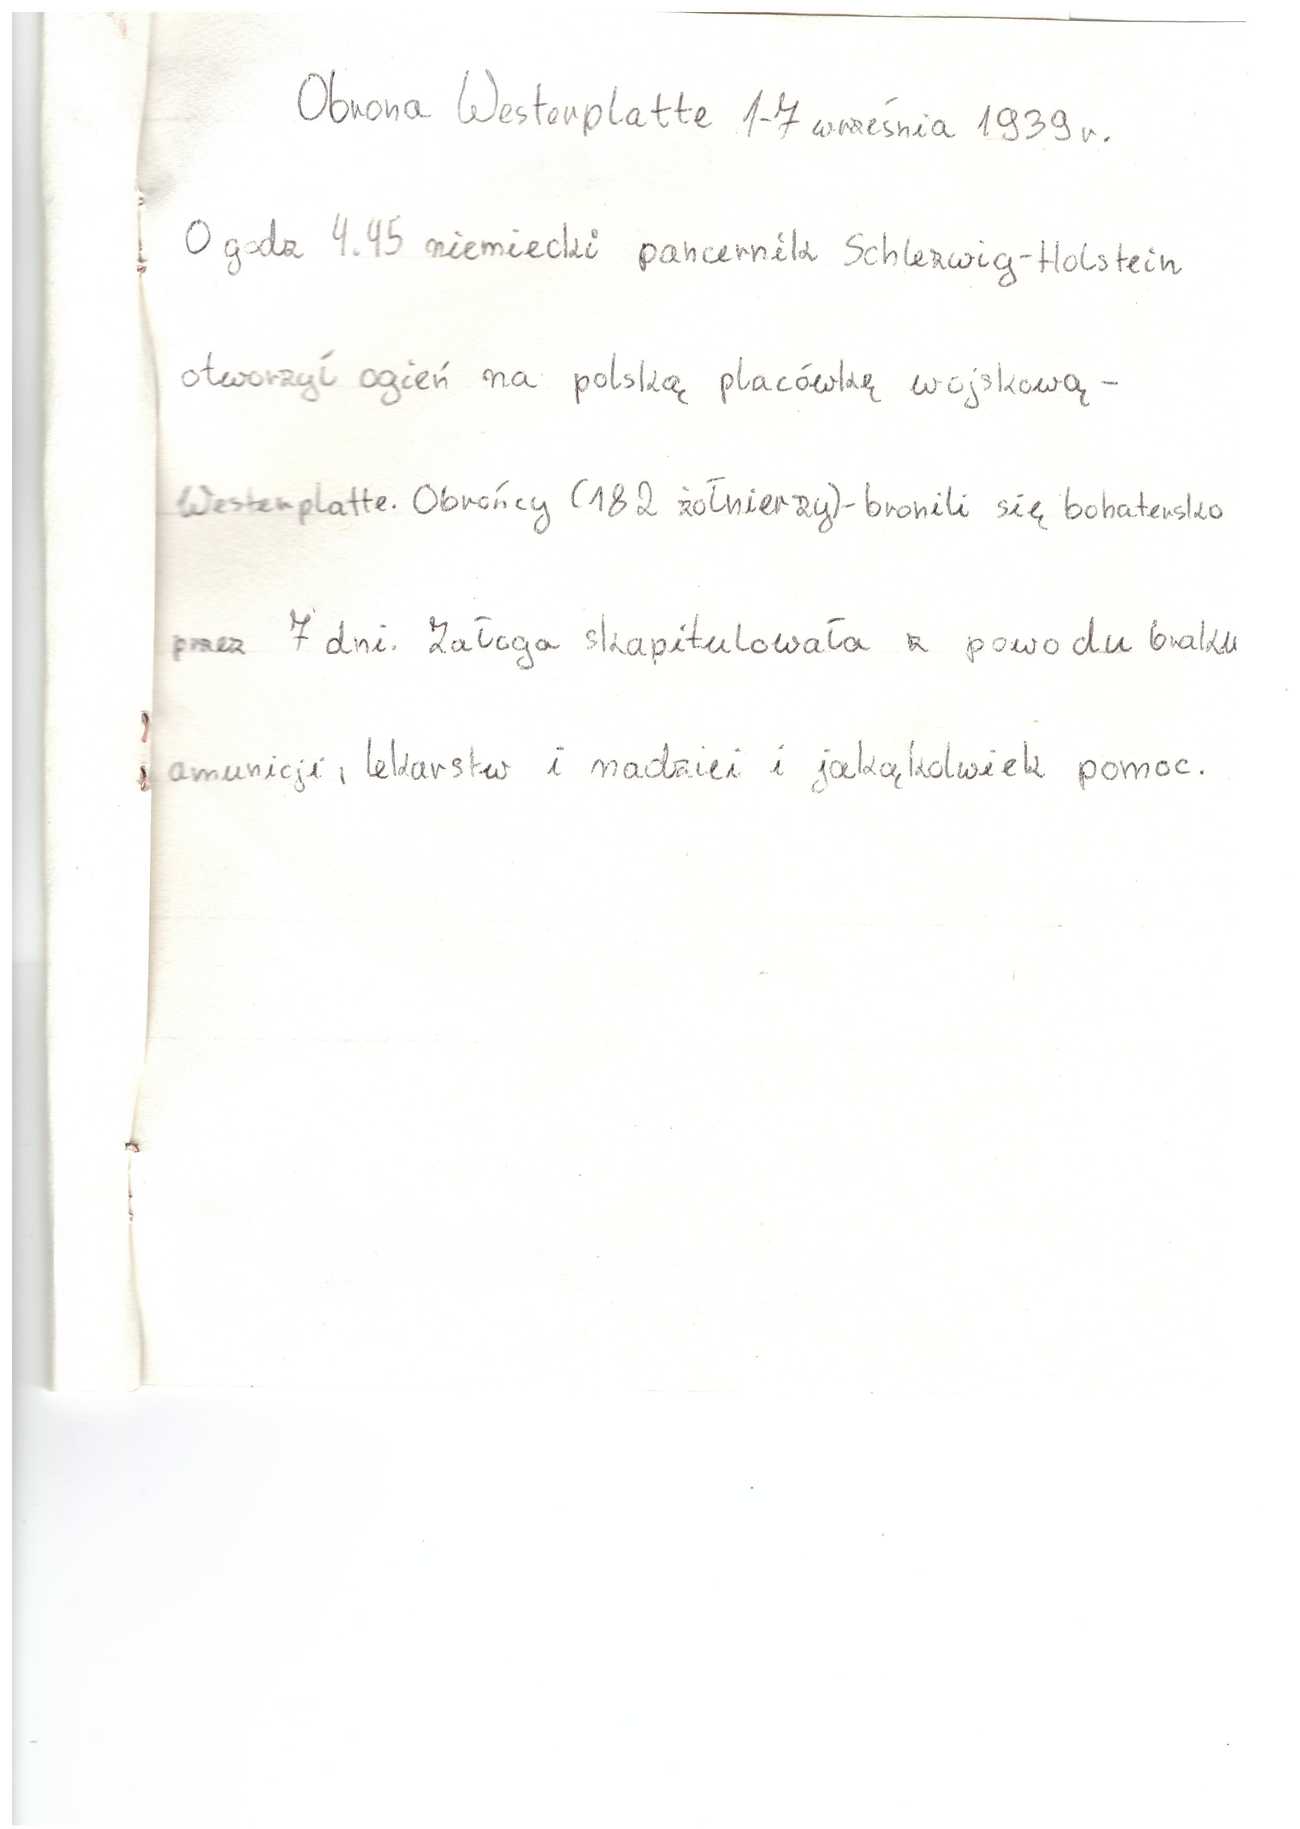 Obrona Westerplatte 1-7 września 1939 r.
O godz 4.45 niemiecki pancernik Schlezwig-Holstein
otworzył ogień na polską placówkę wojskową -
Westerplatte. Obrońcy (182 żołnierzy)-bronili się bohatersko
przez 7 dni. Załoga skapitulowała z powodu braku
amunicji, lekarstw i nadziei i jakąkolwiek pomoc.